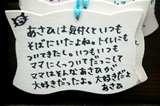 あさひは気付くといつも
そばにいたよね。トイレにも
ついてきたし。いつもいつも
ママにくっついてだっこして
ママはそんなあさひが
大好きだったよ。大好きだよ
あさひ